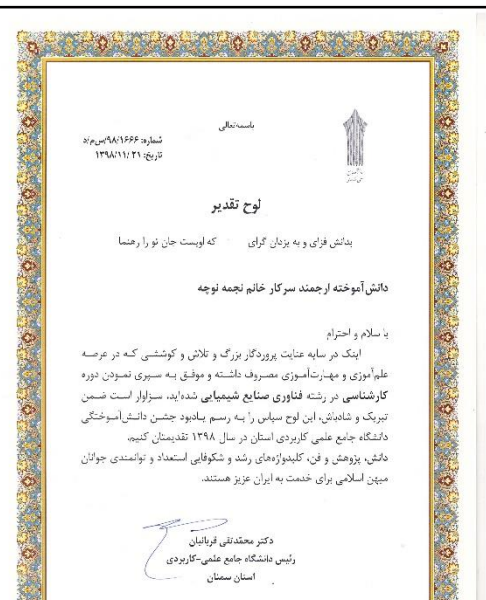 باسمه‌تعالی
شماره: ۹۸/۱۶۶۶/س‌م/د
تاریخ: ۱۳۹۸/۱۱/۲۱
لوح تقدیر
بدانش فزای و به یزدان گرای که اویست جان تو را رهنما
دانش‌آموخته ارجمند سرکار خانم نجمه نوچه
با سلام و احترام
اینک در سایه عنایت پروردگار بزرگ و تلاش و کوششی که در عرصه
علم‌آموزی و مهارت‌آموزی مصروف داشته و موفق به سپری نمودن دوره
کارشناسی در رشته فناوری صنایع شیمیایی شده‌اید، سزاوار است ضمن
تبریک و شادباش، این لوح سپاس را به رسم یادبود جشن دانش‌آموختگی
دانشگاه جامع علمی کاربردی استان در سال ۱۳۹۸ تقدیمتان کنیم.
دانش، پژوهش و فن، کلیدواژه‌های رشد و شکوفایی استعداد و توانمندی جوانان
میهن اسلامی برای خدمت به ایران عزیز هستند.
دکتر محمدتقی قربانیان
رئیس دانشگاه جامع علمی-کاربردی
استان سمنان